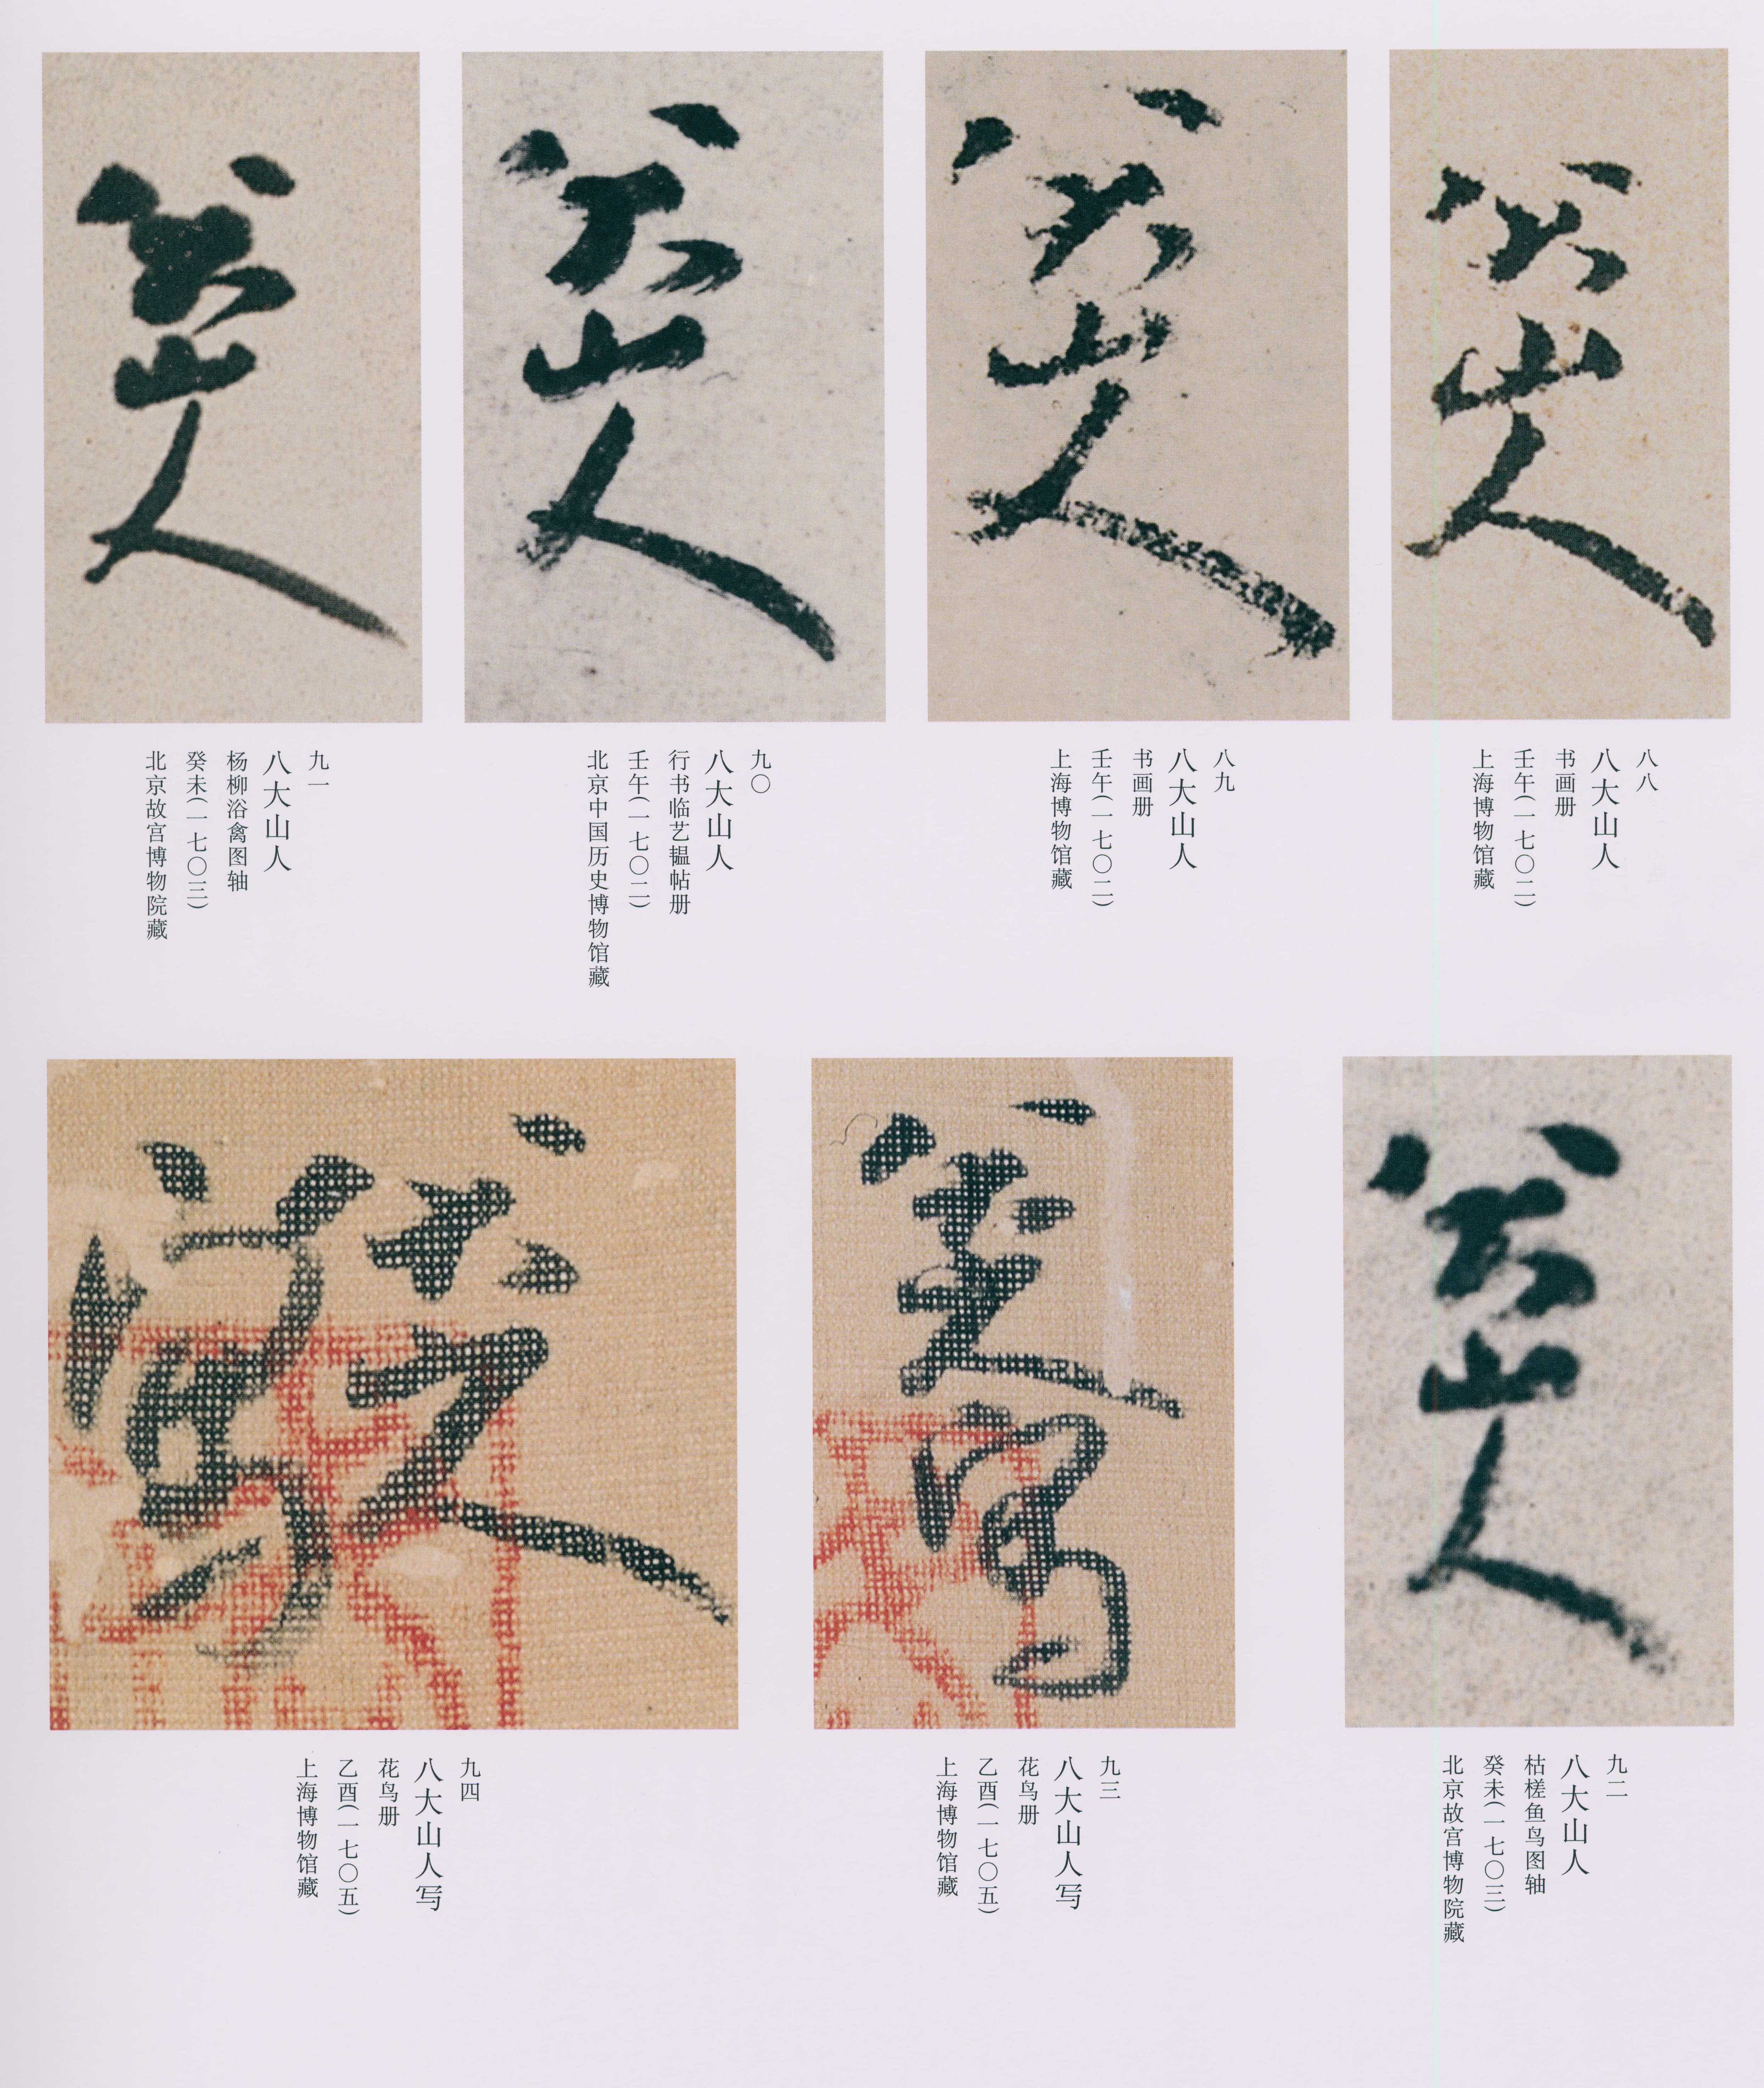 八大山人
八八
八大山人
书画册
壬午(一七〇二)
上海博物馆藏
八大山人
八九
八大山人
书画册
壬午(一七〇二)
上海博物馆藏
八大山人
九〇
八大山人
行书临艺韫帖册
壬午(一七〇二)
北京中国历史博物馆藏
八大山人
九一
八大山人
杨柳浴禽图轴
癸未(一七〇三)
北京故宫博物院藏
八大山人
九二
八大山人
枯槎鱼鸟图轴
癸未(一七〇三)
北京故宫博物院藏
八大山人寫
九三
八大山人写
花鸟册
乙酉(一七〇五)
上海博物馆藏
八大山人
寫
九四
八大山人写
花鸟册
乙酉(一七〇五)
上海博物馆藏